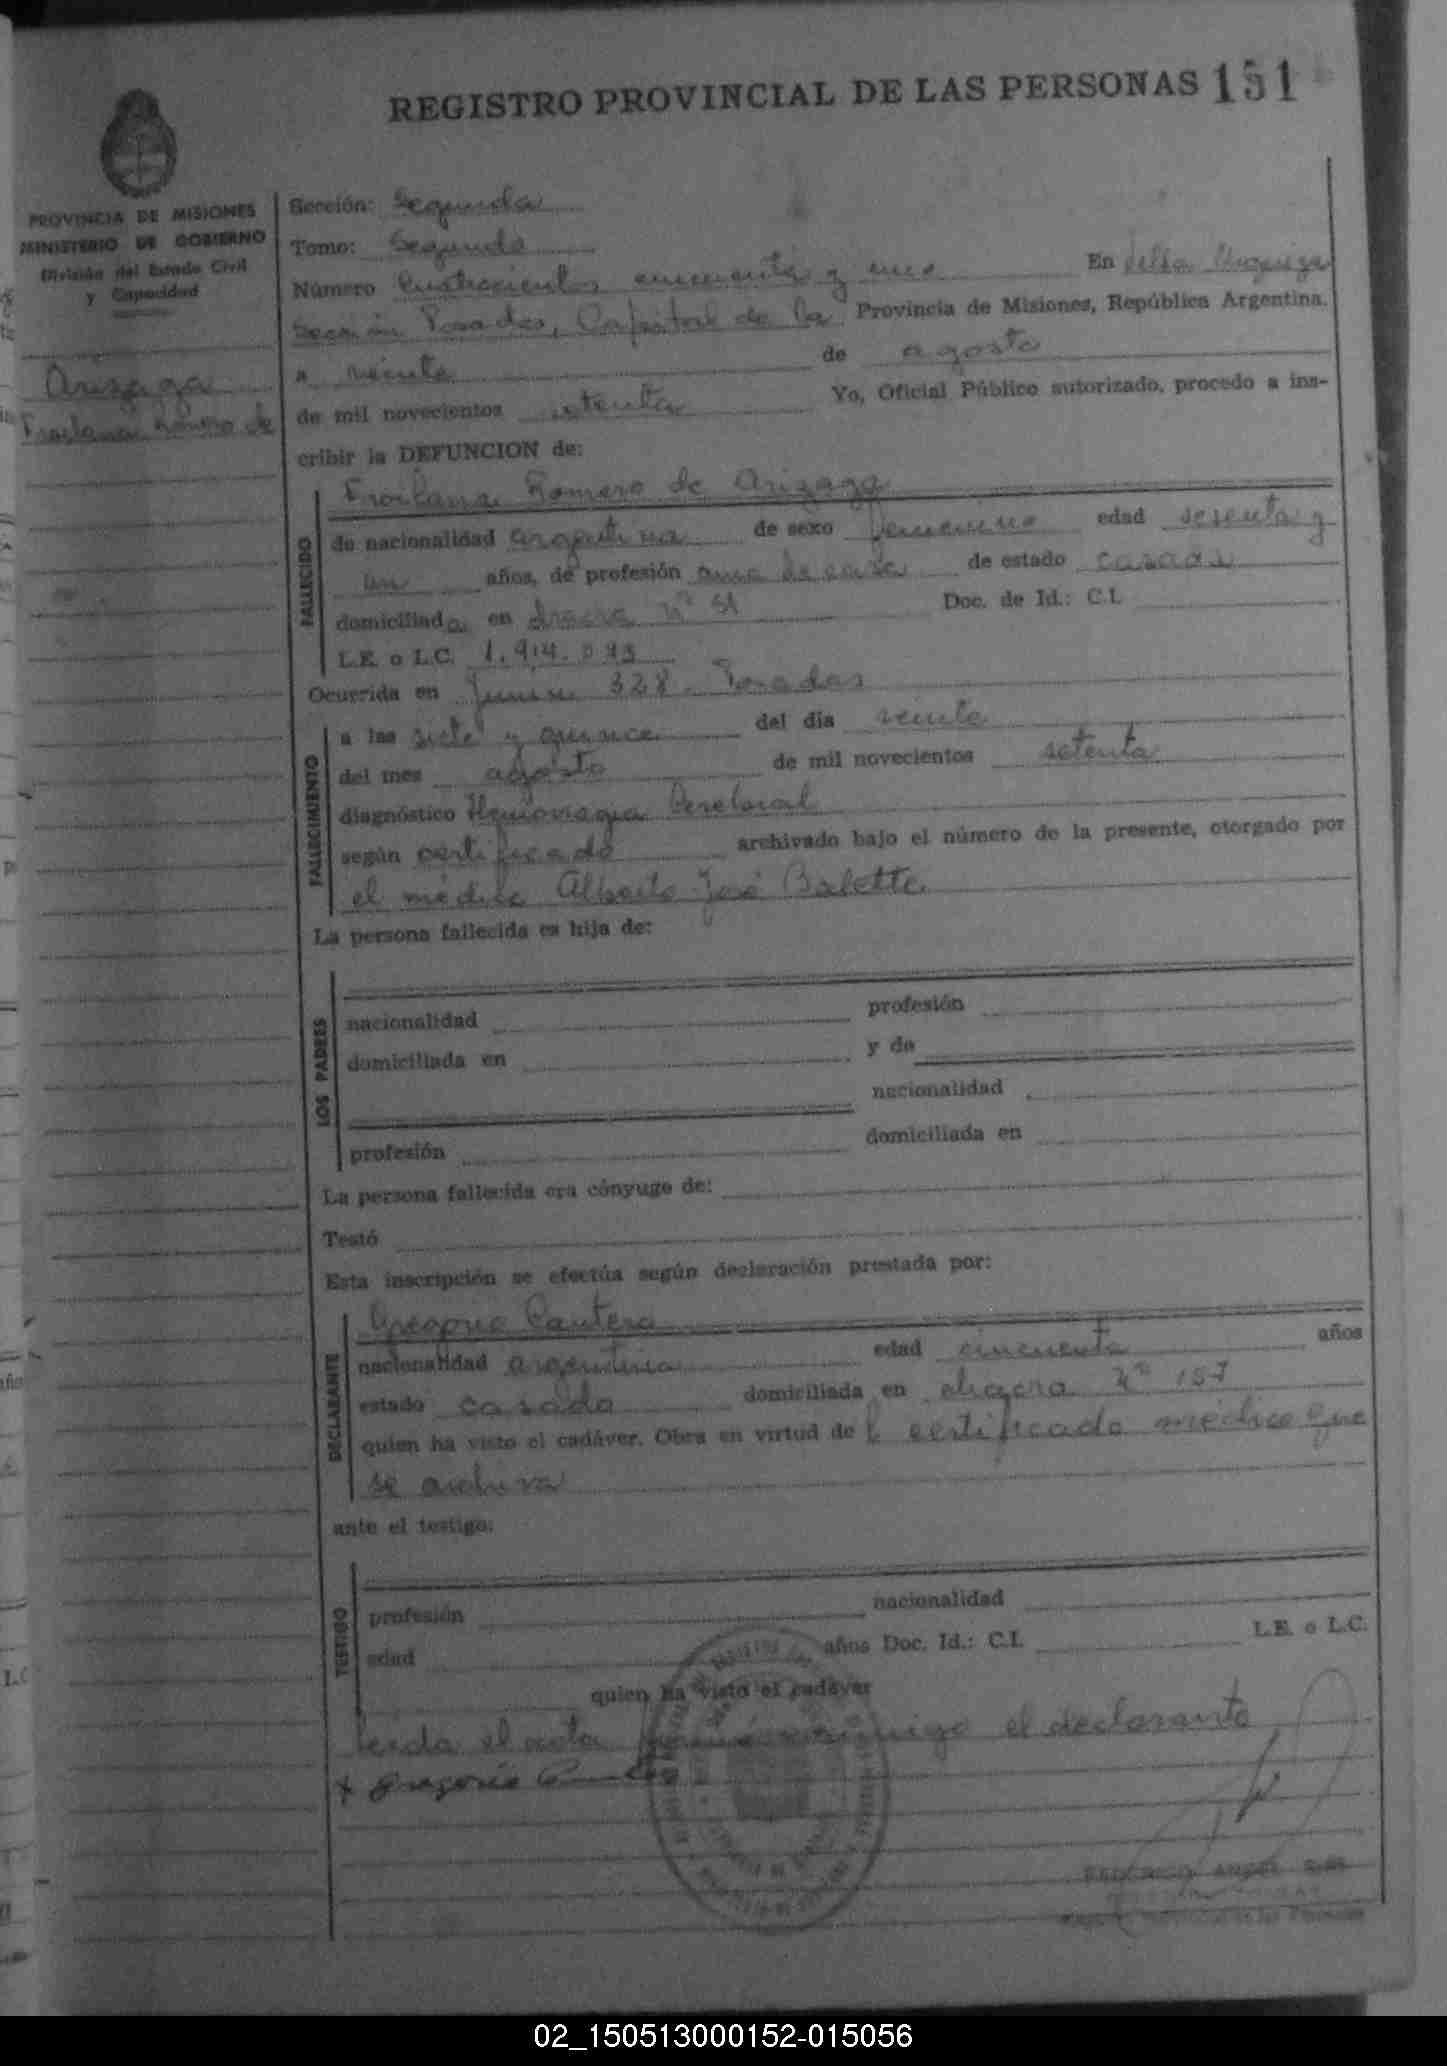 REGISTRO PROVINCIAL DE LAS PERSONAS 151
PROVINCIA DE MISIONES
MINISTERIO DE GOBIERNO
División del Estado Civil
y Capacidad
Arizaga
Froilana Romero de
Sección: Segunda
Tomo: Segundo
Número Cuatrocientos cincuenta y uno En Villa Urquiza
Sección Posadas, Capital de la Provincia de Misiones, República Argentina.
a veinte de agosto
de mil novecientos setenta Yo, Oficial Público autorizado, procedo a ins-
cribir la DEFUNCION de:
FALLECIDO
Froilana Romero de Arizaga
de nacionalidad argentina de sexo femenino edad sesenta y
un años, de profesión ama de casa de estado casada
domiciliada en chacra nº 51 Doc. de Id.: C.I.
L.E. o L.C. 1.914.093
Ocurrida en Junín 328 Posadas
FALLECIMIENTO
a las siete y quince del día veinte
del mes agosto de mil novecientos setenta
diagnóstico Hemorragia Cerebral
según certificado archivado bajo el número de la presente, otorgado por
el médico Alberto José Balette
La persona fallecida es hija de:
LOS PADRES
nacionalidad profesión
domiciliada en y de
nacionalidad
profesión domiciliada en
La persona fallecida era cónyuge de:
Testó
Esta inscripción se efectúa según declaración prestada por:
DECLARANTE
Gregorio Cantero
nacionalidad argentina edad cincuenta años
estado casado domiciliada en chacra Nº 157
quien ha visto el cadáver. Obra en virtud del certificado médico que
se archiva
ante el testigo:
TESTIGO
profesión nacionalidad
edad años Doc. Id.: C.I. L.E. o L.C.
quien ha visto el cadáver
Leida el acta firma conmigo el declarante
x Gregorio
FEDERICO ANGEL
02_150513000152-015056